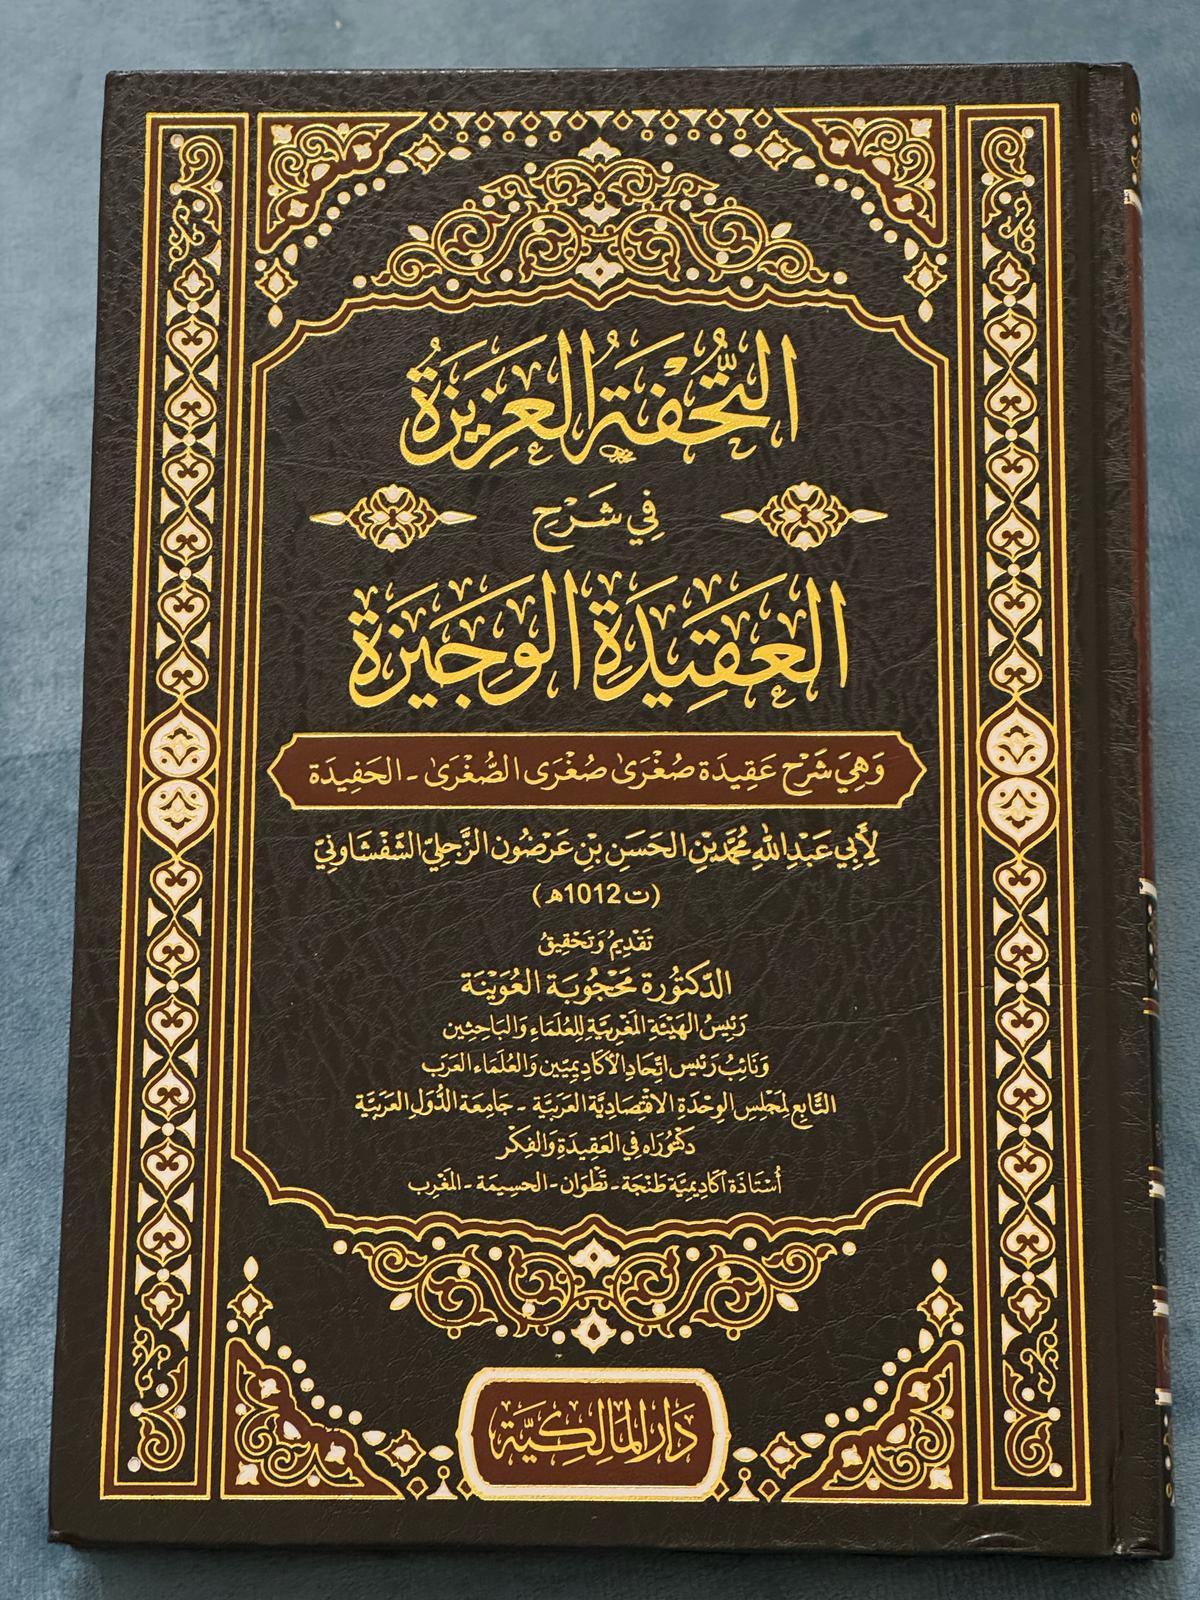 التُّحْفَةُ العَزِيزَةُ
فِي شَرْحِ
العَقِيدَةِ الوَجِيزَةِ
وَهِيَ شَرْحِ عَقِيدَة صُغْرَىٰ صُغْرَى الصُّغْرَىٰ - الحَفِيدَة
لِأَبِي عَبْدِ اللهِ مُحَمَّدِ بْنِ الحَسَنِ بْنِ عَرْضُون الزَّجلِيّ الشَّفْشَاوِنِيّ
(ت 1012هـ)
تَقْدِيمُ وَتَحْقِيقُ
الدّكتُورَة مَحْجُوبَة العُوَيْنَة
رَئِيسُ الهَيْئَةِ المَغْرِبِيَّةِ لِلْعُلَمَاءِ وَالبَاحِثِين
وَنَائِبُ رَئِيسِ اتِّحَادِ الأكَادِيمِيِّين وَالعُلَمَاء العَرَب
التَّابِعِ لمَجْلِسِ الوِحْدَة الاقْتِصَادِيَّة العَرَبِيَّة - جَامِعَة الدُّوَلِ العَرَبِيَّة
دكتُورَاه فِي العَقِيدَةِ وَالفِكْر
أُسْتَاذَة أكَادِيمِيَّة طَنْجَة - تَطْوَان - الحسِيمَة - المَغْرِب
دَارُ المَالِكِيَّة